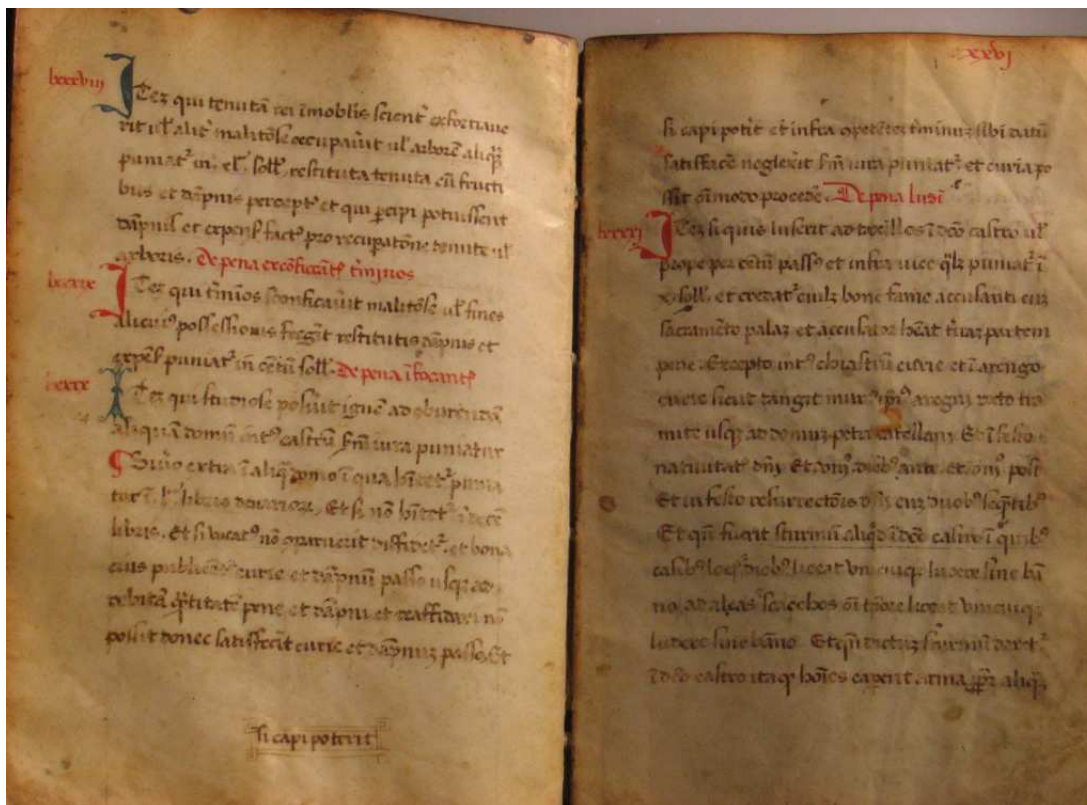 lxxxviii
Itez qui tenutã rei ĩmobilis scient̃ exfortiave
rit ul' alit̃ malitõse occupav̾it ul' arborẽ aliqᷓ
puniat᷑ in . xl . soll' . restituta tenuta cũ fructi
bus et dãpnis percept᷑ et qui p̃cipi potuissent
dãpnis et expens᷑ fact᷑ pro recupatõne tenute ul'
arboris . De pena exconficcant᷑ t̃minos
lxxxix
Itez qui t̃mĩos sconficav̾it malitõse ul' fines
alicui᷒ possessionis freg̃it restitutis dãpnis et
expens᷑ puniat᷑ in centũ soll' . De pena ĩfocant᷑
lxxx
Itez qui studiose posũit ignẽ ad cõburendã
aliquã domũ int᷒ castrũ scdm iura puniatur
Siṽo extra ĩ aliqᷓ domo ĩ qua hĩtet᷑ punia
tur ĩ . l . libris
Et si nõ hĩtet᷑ ĩ decẽ
libris . Et si vocat᷒ nõ cparuerit diffidet᷑ . et bona
eius publicent᷑ curie et dãpnũ passo usqz ad
debitã q̃titatẽ pene et dãpni et reaffidari nõ
possit donec satisfec̃it curie et dãpnuz passo . Et
si capi poterit
xxvi
si capi pot̃it et infra cpetentez t̃minuz sibi datũ
satisfacẽ neglex̃it scdm iura puniat᷑ et curia po
ssit oĩmodo procedẽ . De pena ludi
lxxxxi
Itez si quis luserit ad taxillos ĩ dc̃o castro ul'
prope per centũ pass᷒ et infra vice q̃lz puniat᷑ ĩ
x . soll' . et credat᷑ cuilz bone fame accusanti cuz
sacramẽto palaz et accusator hẽat t̃tiaz partem
pene . Excepto int᷒ claustrũ curie et ĩ arengo
curie sicut tangit mur᷒
arengi recto tra
mite usqz ad domuz petri catellani . Et ĩ festo
nativitat᷑ dñi Et
dieb᷒ ante . et
post
Et in festo resurrectõis dñi cuz duob᷒ seq̃ntib᷒
Et qñ fuerit sturmũ aliq̊d ĩ dc̃o castro ĩ quib᷒
casib᷒
dieb᷒ liceat unicuiqz ludere sine bã
no . ad aleas
scacchos oĩ tp̃ore liceat unicuiqz
ludere sine bãno . Et qñ dictuz sturmũ
ĩ dc̃o castro itaqz hoĩes caperẽt arma
aliqᷓ